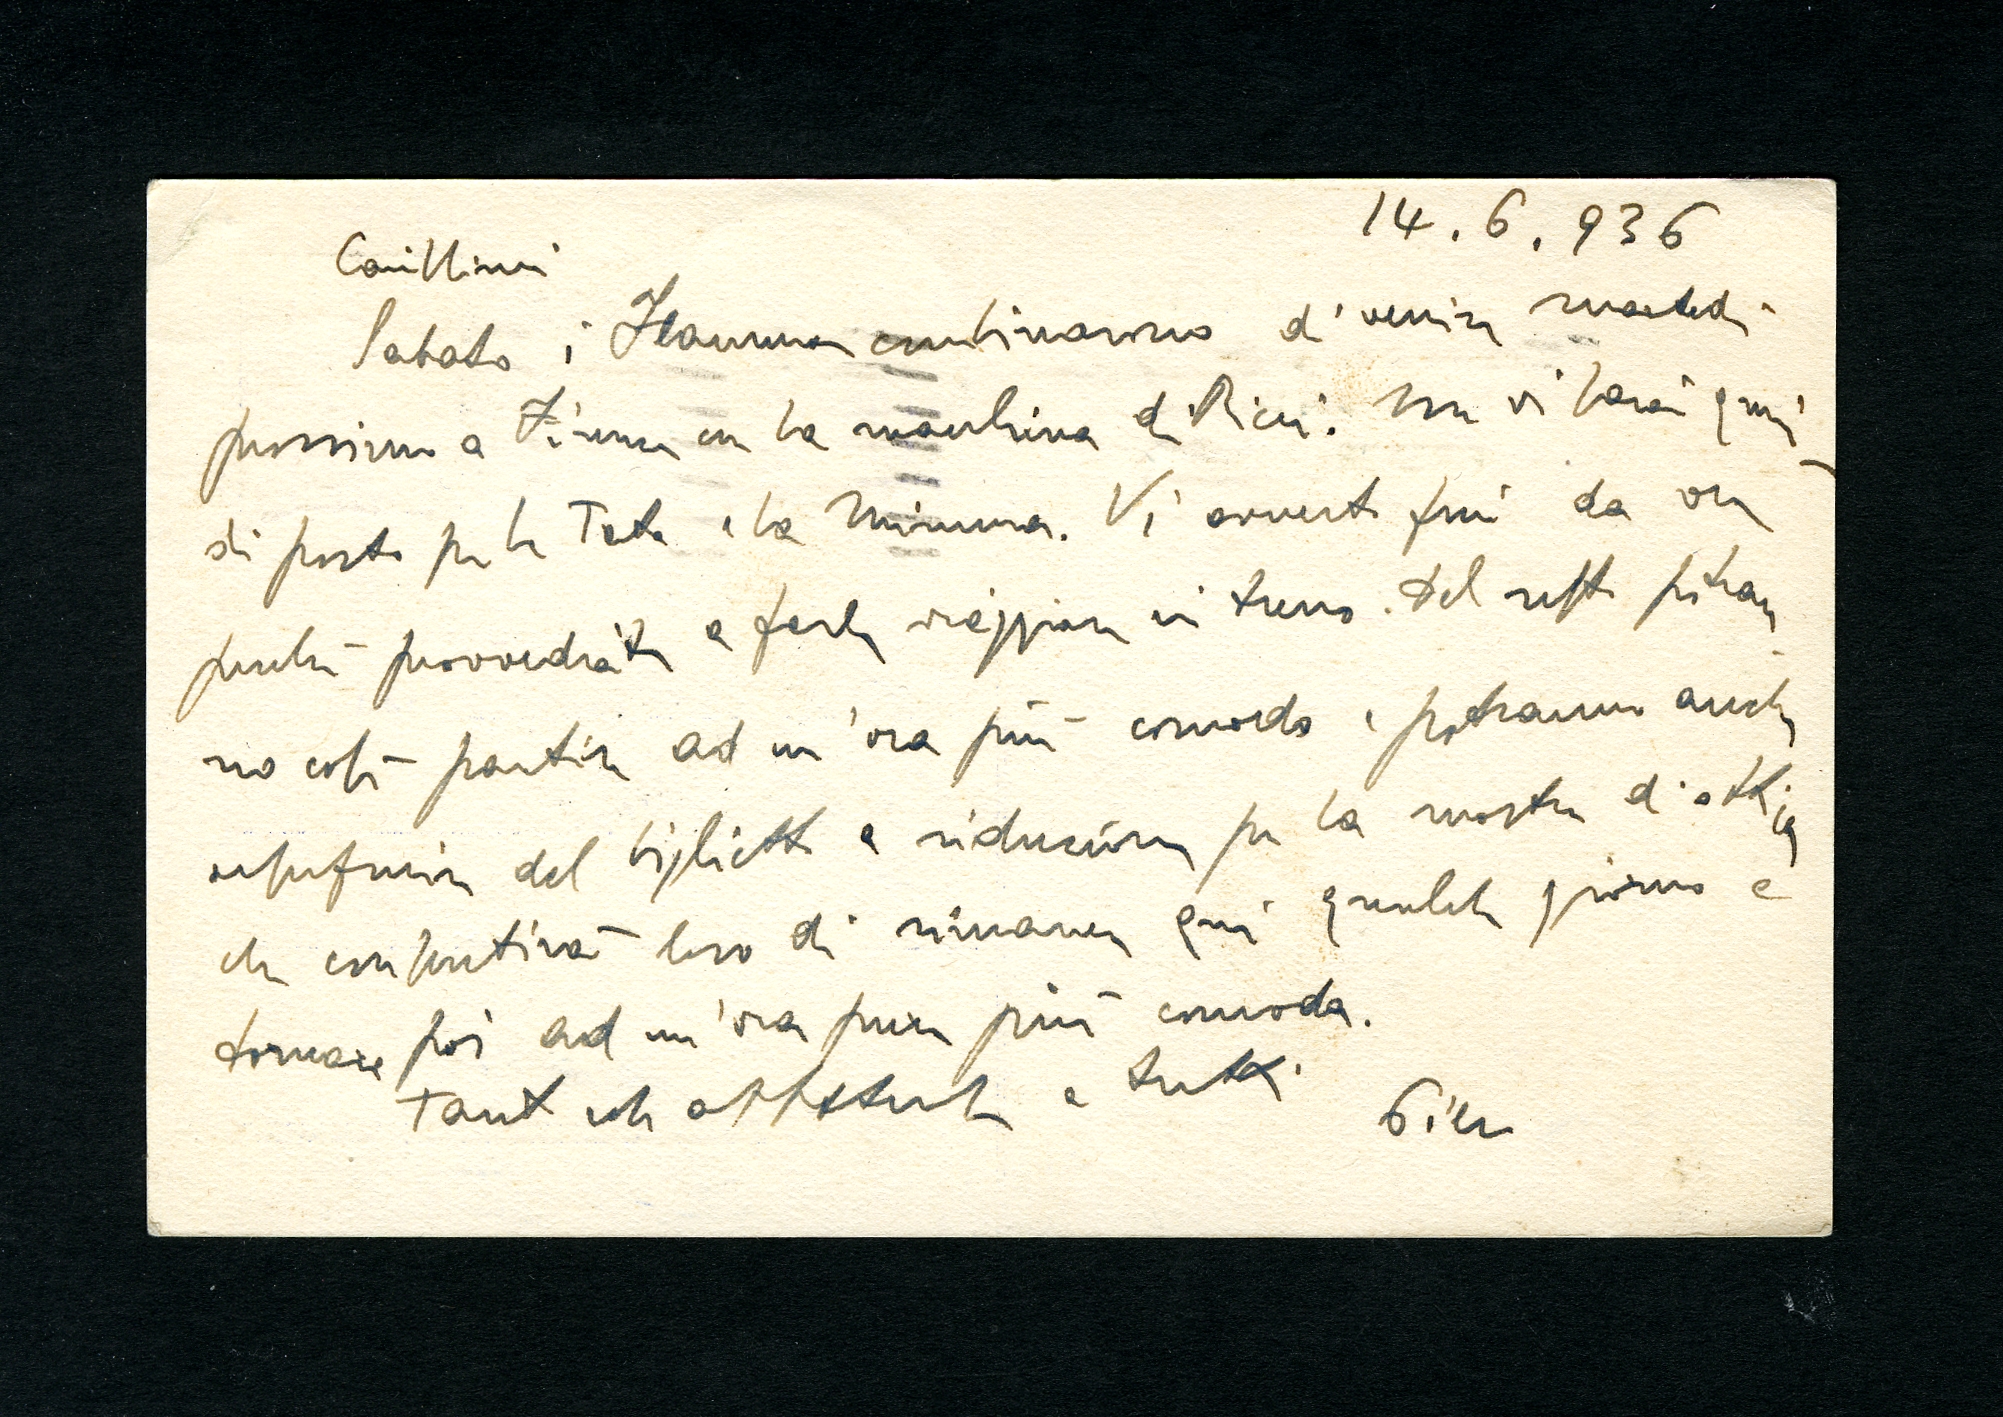 14.6.936
Carissimi
Sabato i combinarono di venire martedì
prossimo a Firenze con la macchina di Ricci. Non vi sarà quindi
di posto per la Tata e la Mimma. Vi avverto fin da ora
perché provvediate a farle viaggiare in treno. Del resto potran
no così partire ad un'ora più comoda e potranno anche
usufruire del biglietto a riduzione per la mostra
che consentirà loro di rimanere qui qualche giorno e
tornare poi ad un'ora pure più comoda.
Tante cose affettuose a tutti. Piero